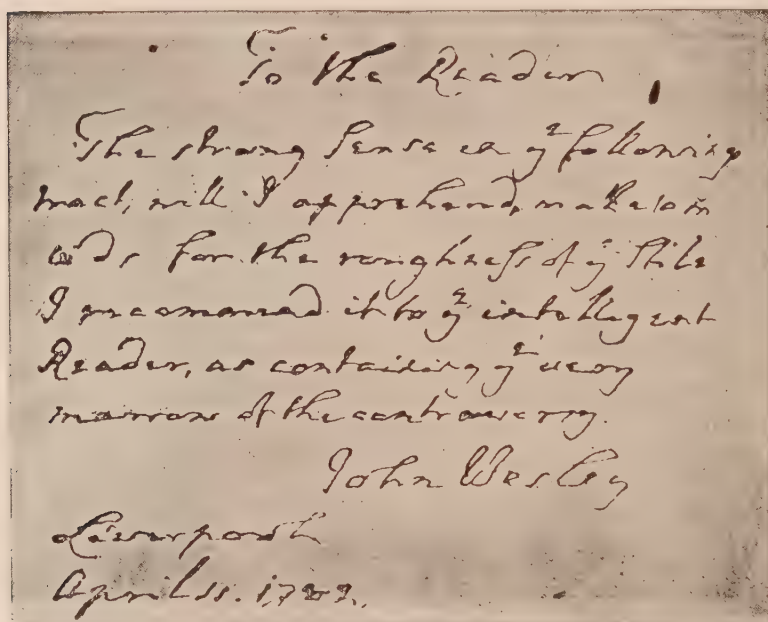 To the Reader
The strong sense in yᵉ following
tract, will I apprehend, make am
ends for the roughness of yᵉ Stile
I recommend it to yᵉ intelligent
Reader, as containing yᵉ very
marrow of the controversy.
John Wesley
Liverpool
April 11. 1782.